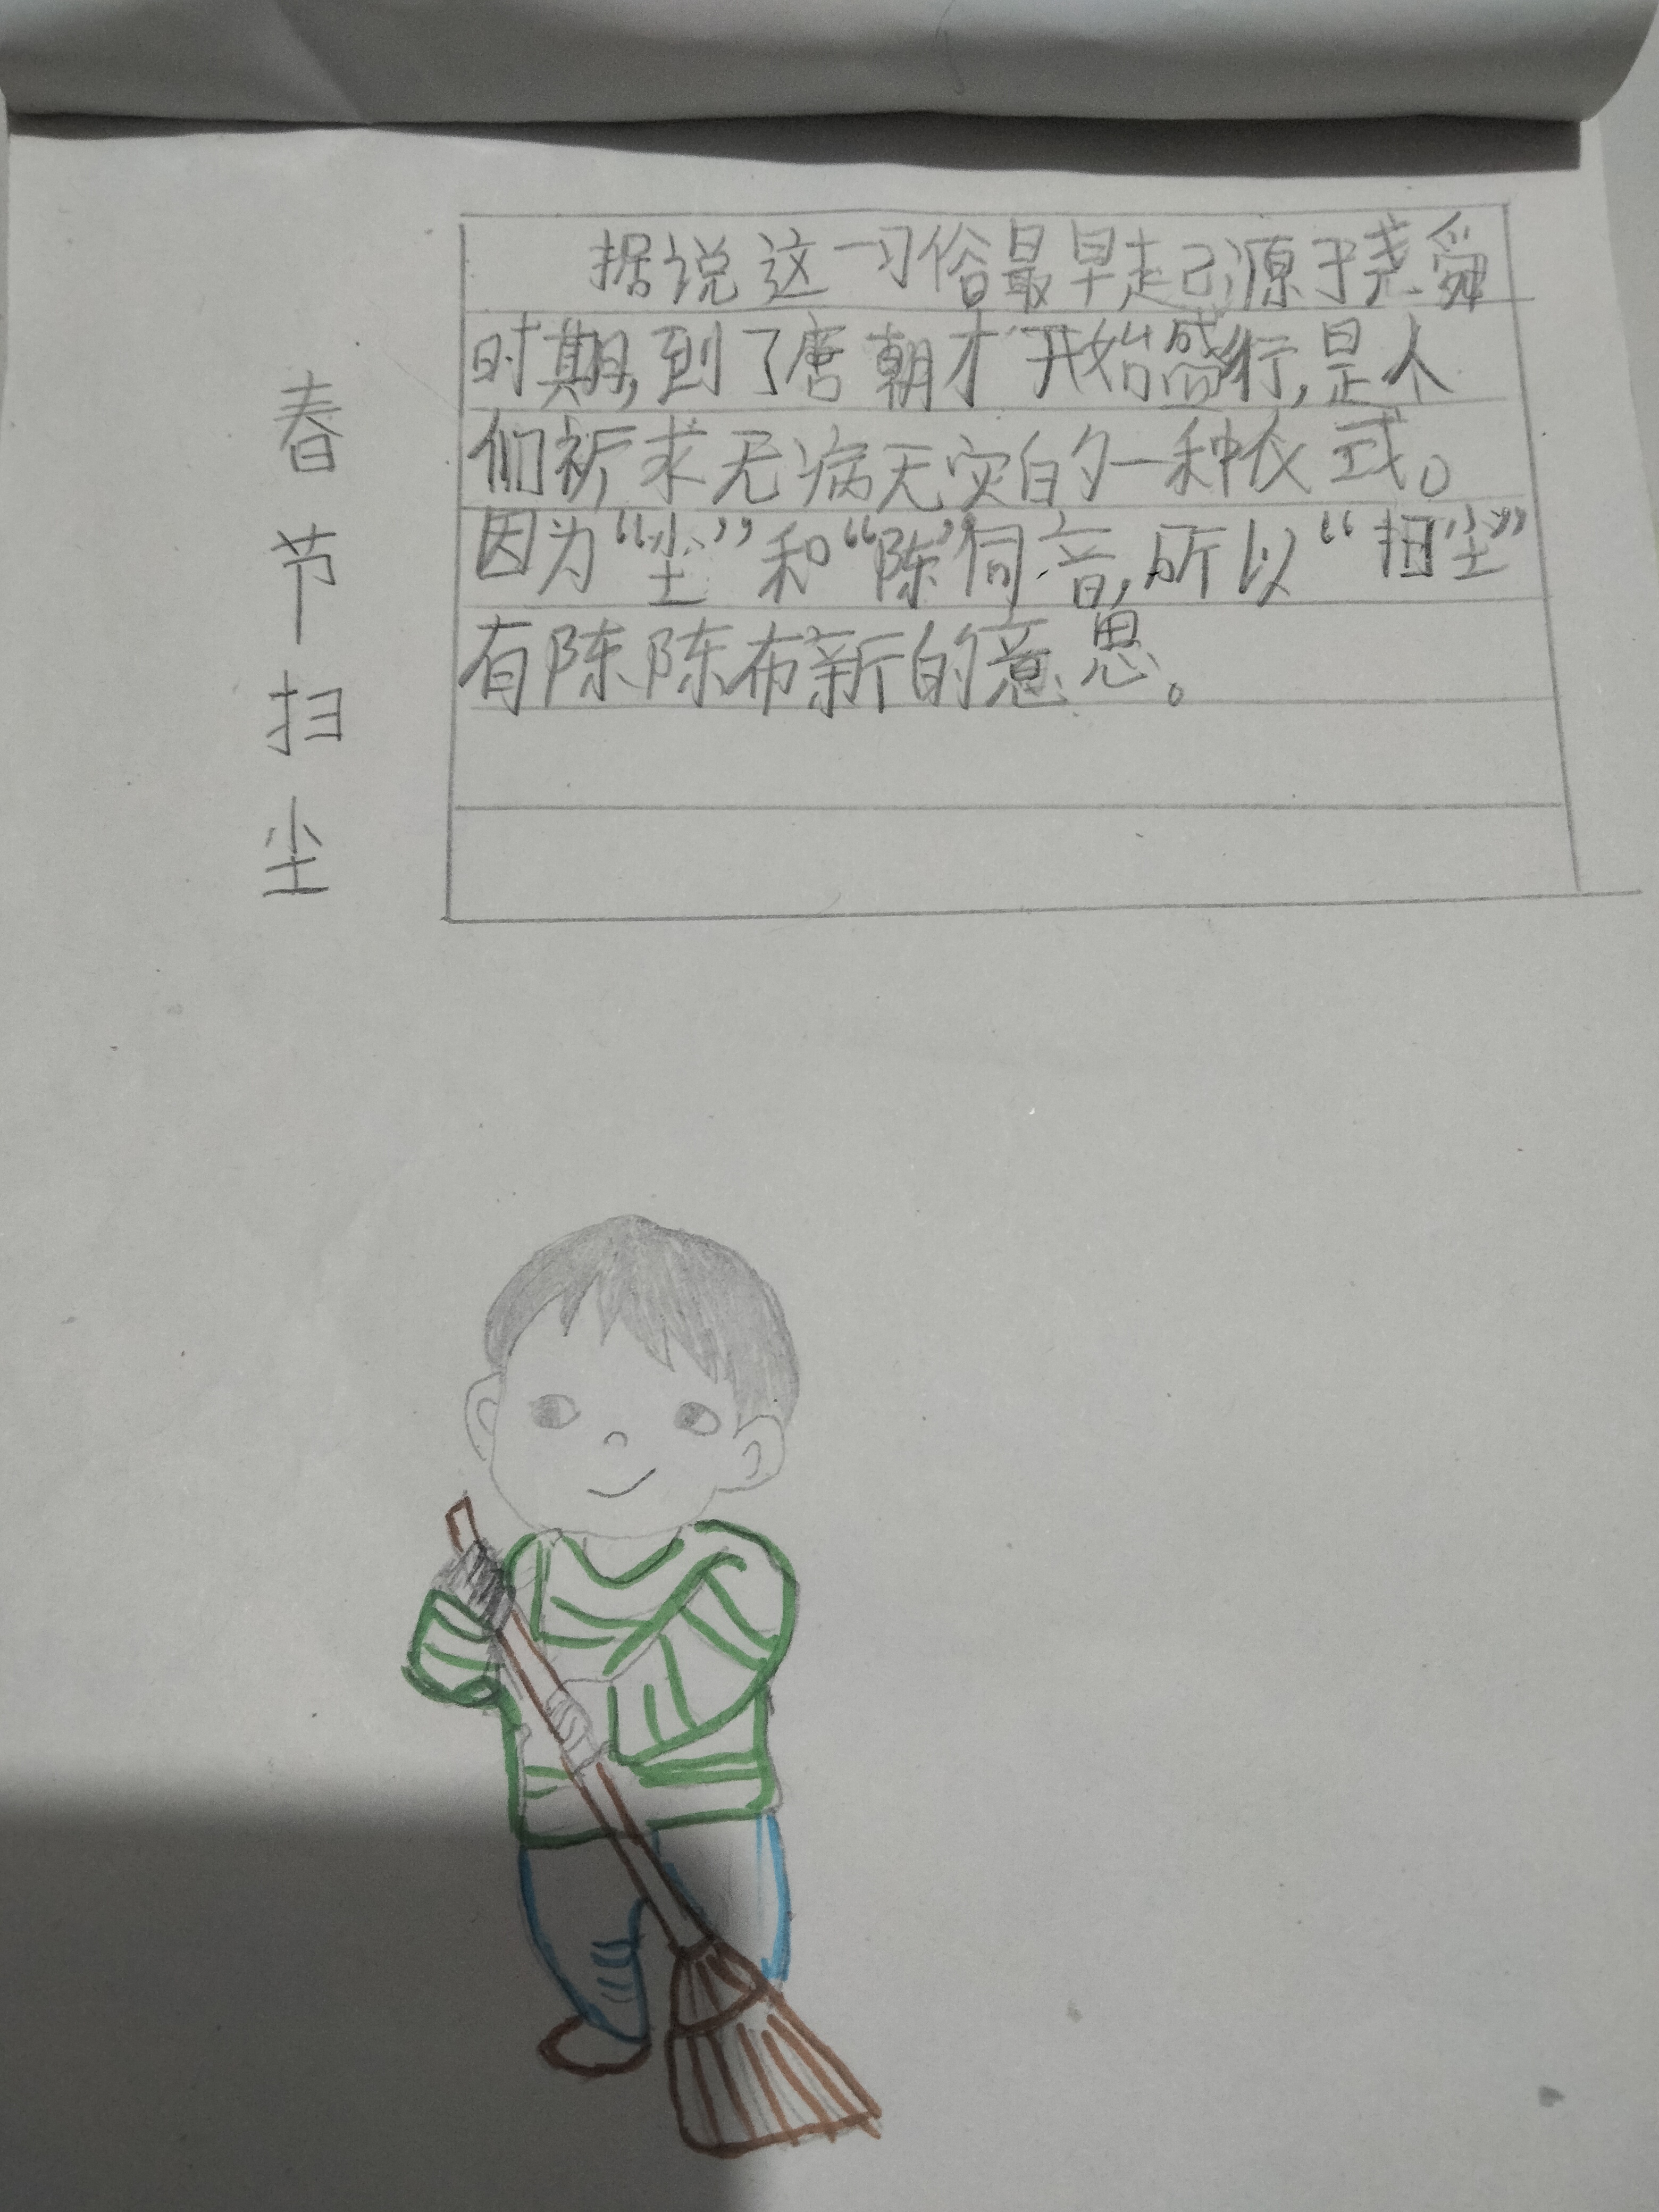 春节扫尘
据说这一习俗最早起源于尧舜
时期,到了唐朝才开始盛行,是人
们祈求无病无灾的一种仪式。
因为“尘”和“陈”同音,所以“扫尘”
有陈陈布新的意思。